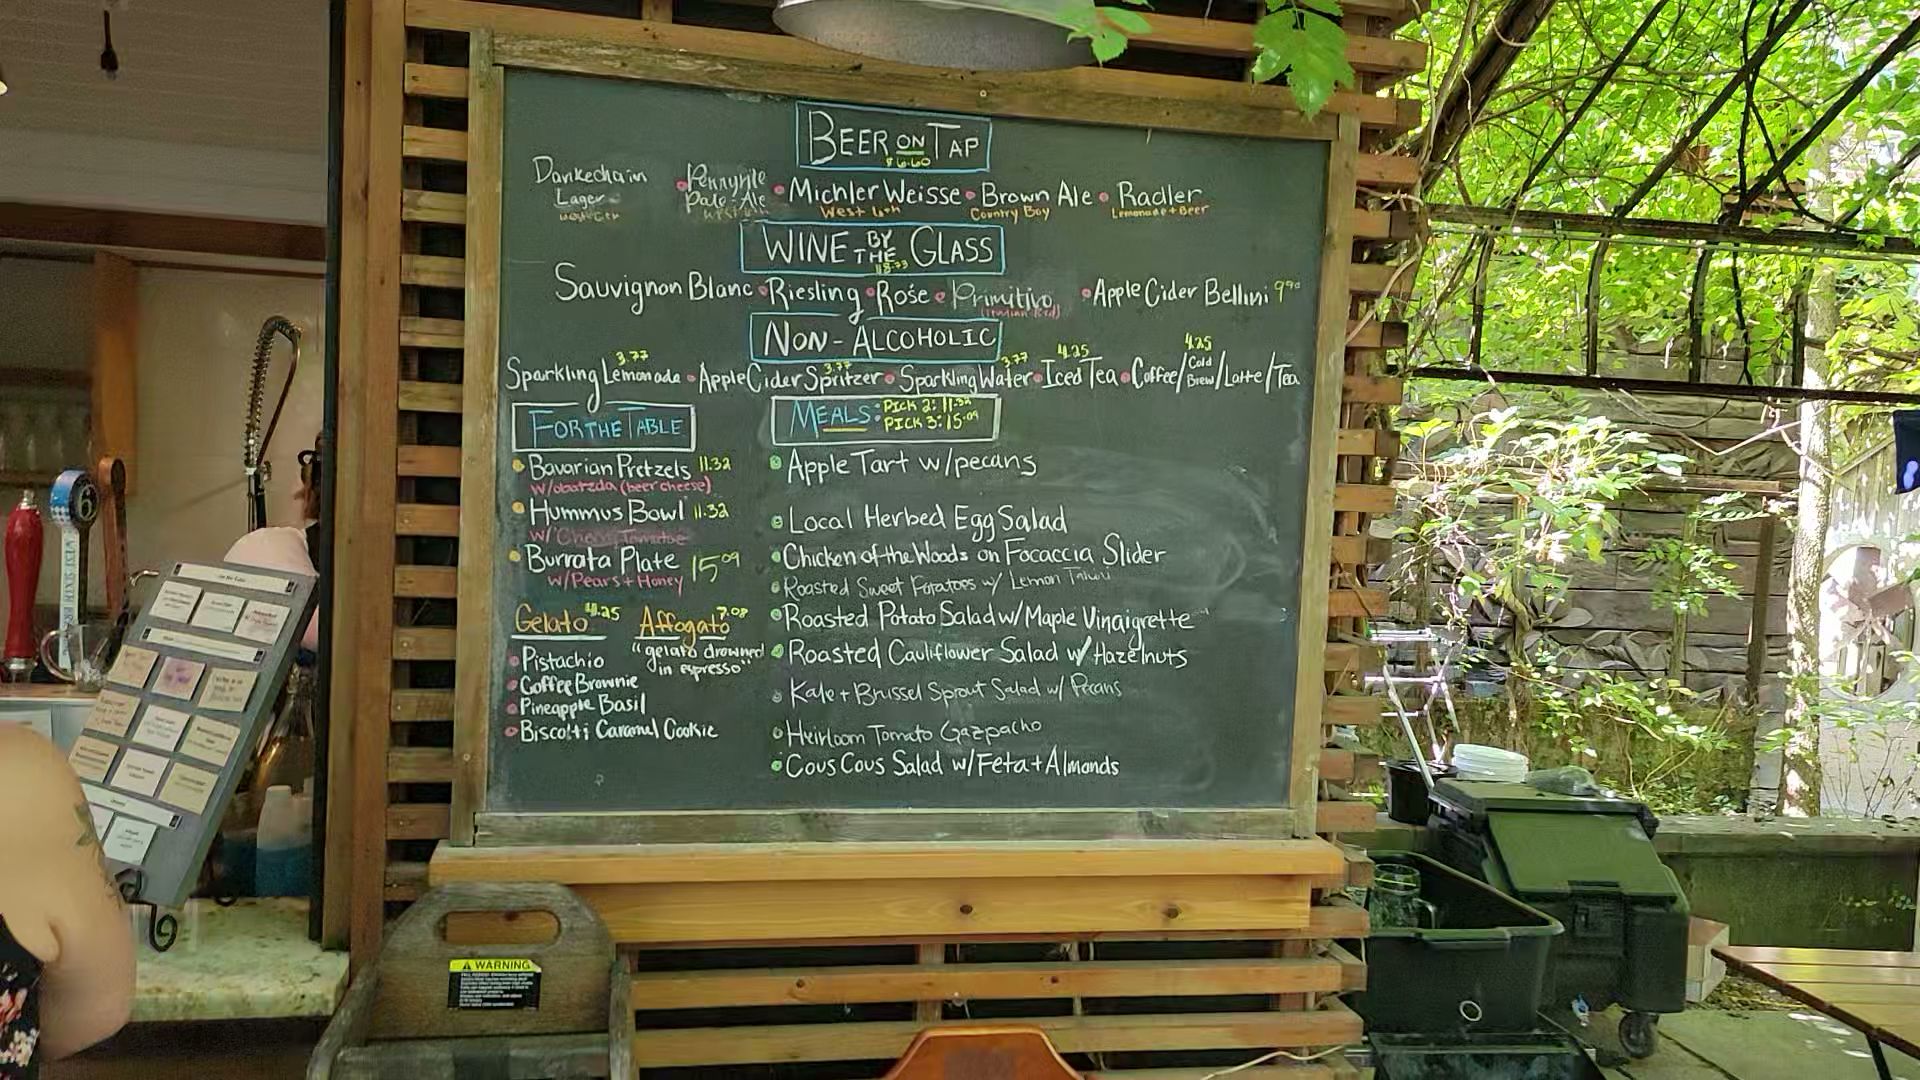 BEER ON TAP
$6.60
Dankechain Lager
West 6th
• Pennyrile Pale Ale
West 6th
• Michler Weisse • Brown Ale • Radler
West 6th
Country Boy
Lemonade + Beer
WINE BY THE GLASS
Sauvignon Blanc • Riesling • Rosé • Primitivo • Apple Cider Bellini 9.90
(Italian Red)
NON-ALCOHOLIC
Sparkling Lemonade 3.77 • Apple Cider Spritzer 3.77 • Sparkling Water 3.77 • Iced Tea 4.25 • Coffee/Cold Brew/Latte/Tea 4.25
FOR THE TABLE
• Bavarian Pretzels 11.32
w/obatzda (beer cheese)
• Hummus Bowl 11.32
w/ Cherry Tomatoe
• Burrata Plate 15.09
w/Pears + Honey
Gelato 4.25
• Pistachio
• Coffee Brownie
• Pineapple Basil
• Biscotti Caramel Cookie
Affogato 7.08
"gelato drowned
in espresso"
MEALS: PICK 2: 11.32
PICK 3: 15.09
• Apple Tart w/pecans
• Local Herbed Egg Salad
• Chicken of the Woods on Focaccia Slider
• Roasted Sweet Potatoes w/ Lemon Tahini
• Roasted Potato Salad w/ Maple Vinaigrette
• Roasted Cauliflower Salad w/ Hazelnuts
• Kale + Brussel Sprout Salad w/ Pecans
• Heirloom Tomato Gazpacho
• Cous Cous Salad w/Feta + Almonds
WARNING